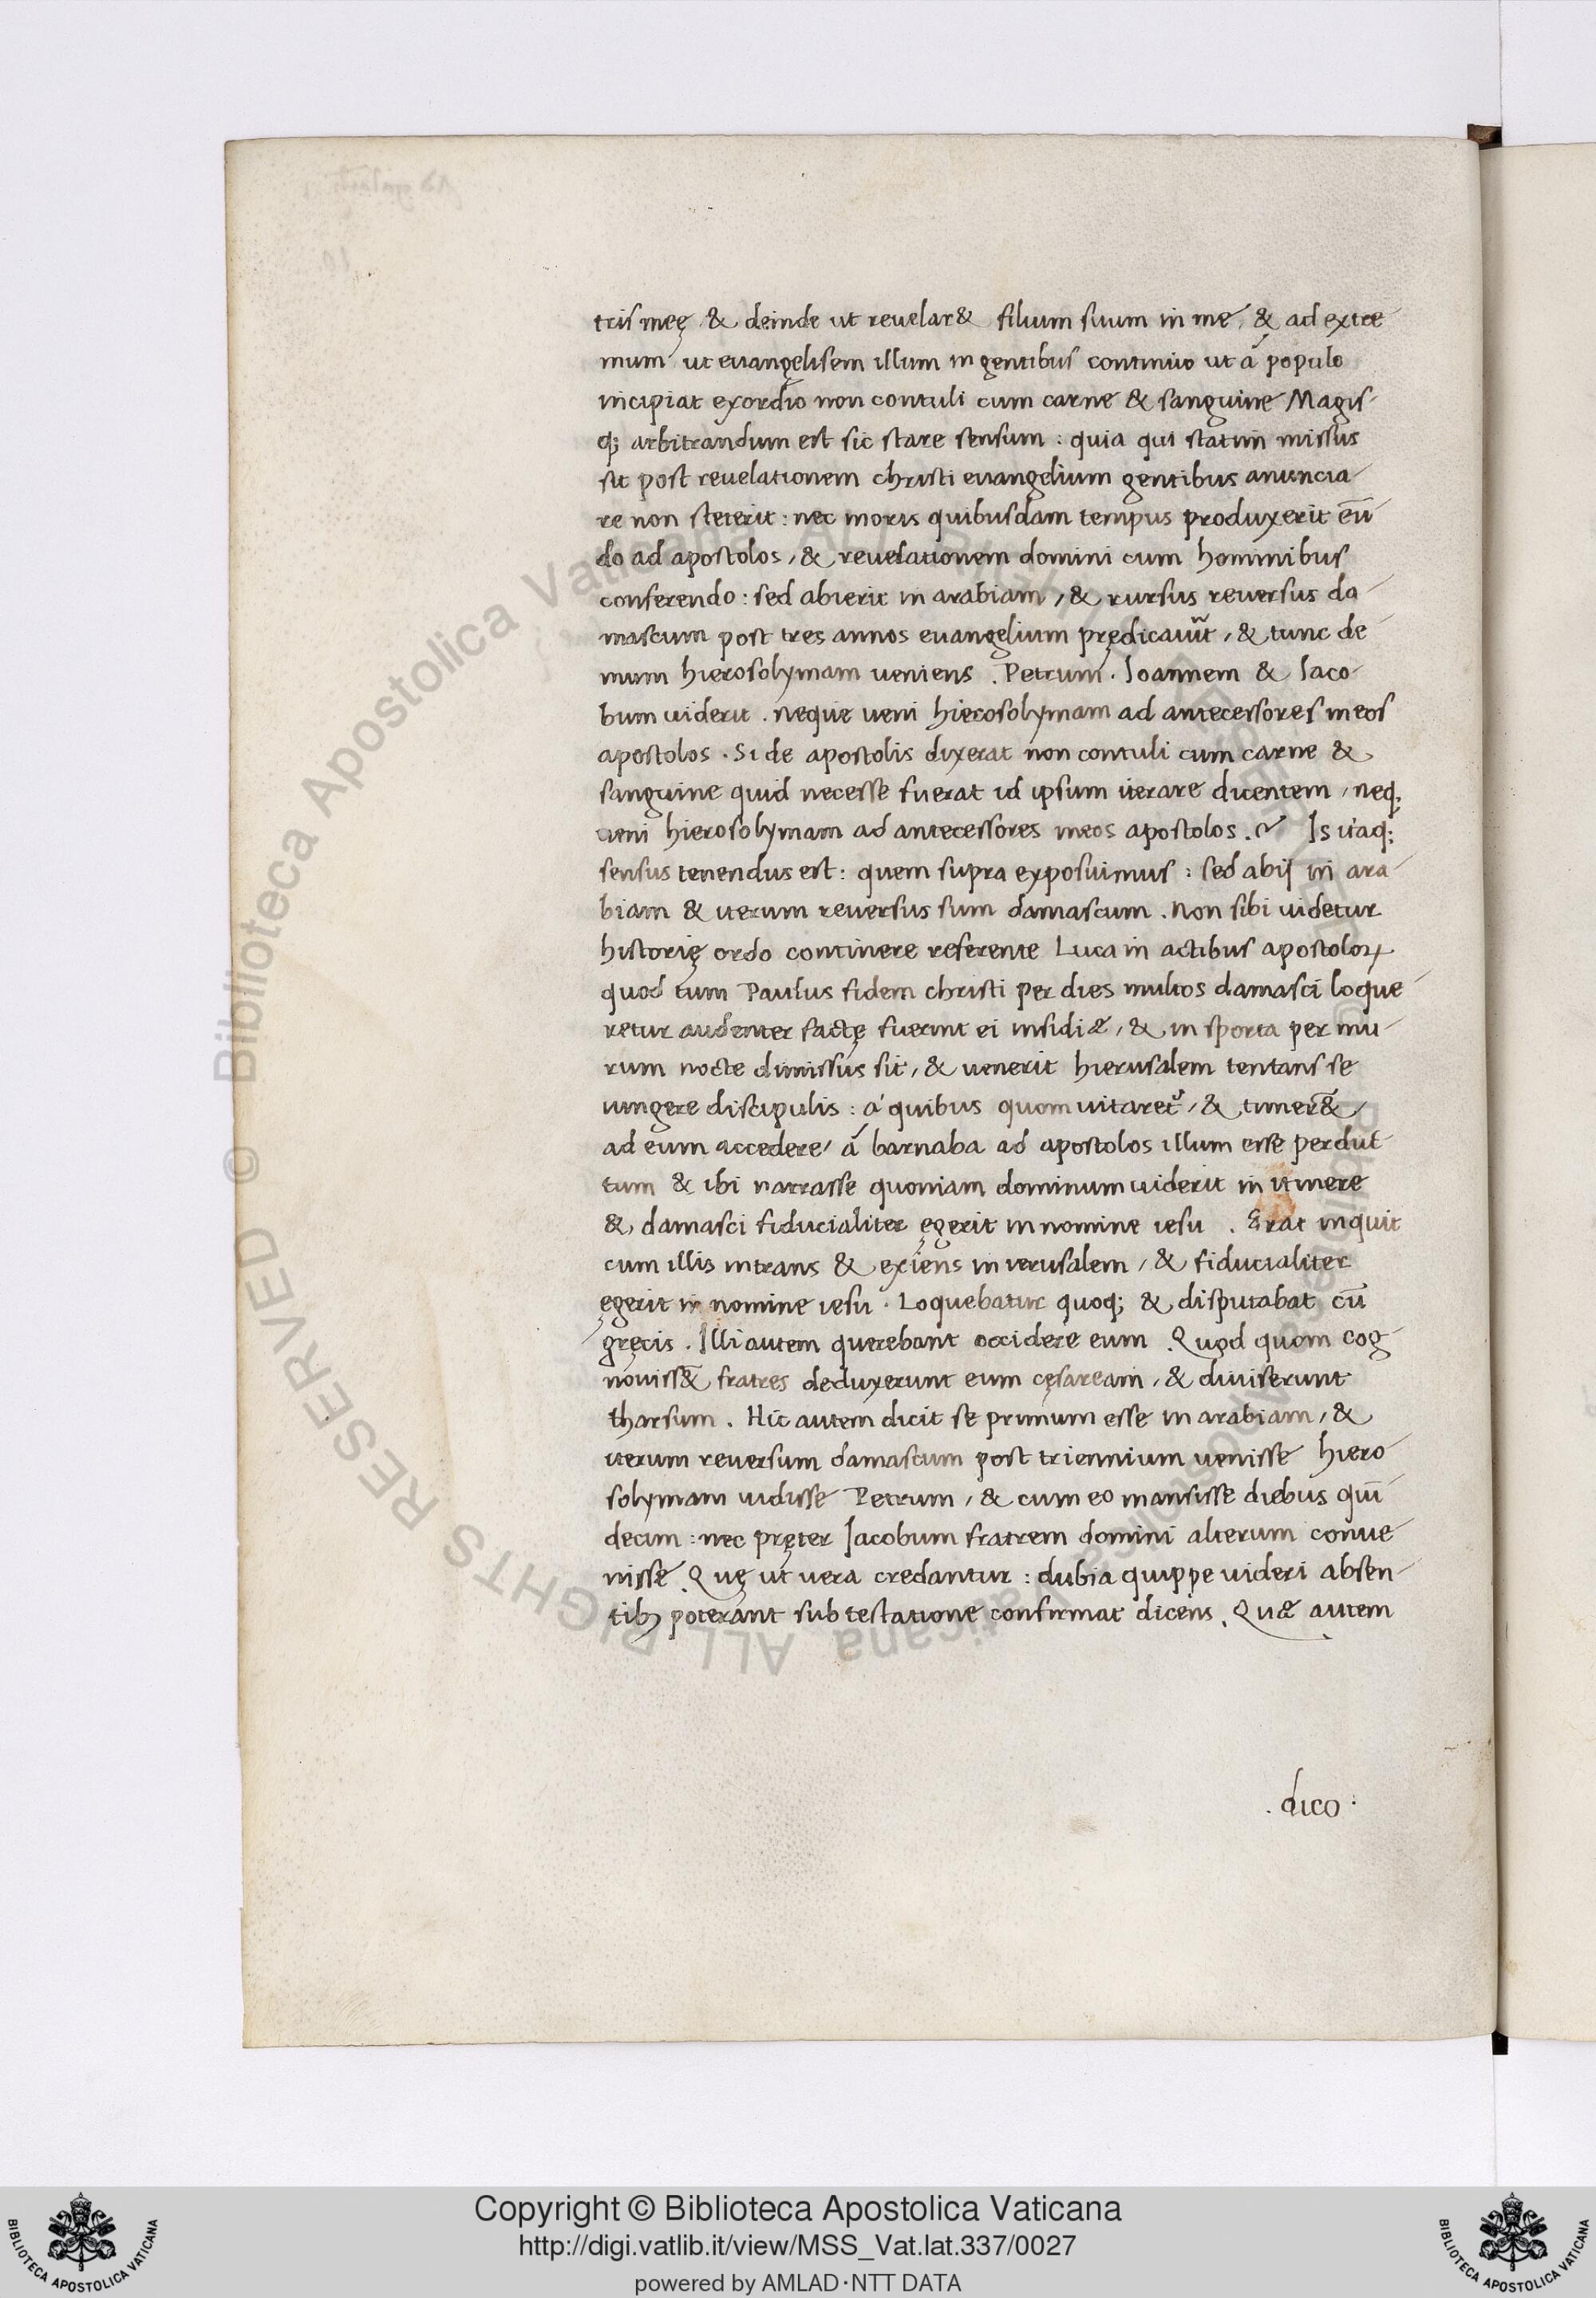 tris meę, & deinde ut reuelar& filium suum in me, & ad extre
mum, ut euangelisem illum in gentibus continuo ut á populo
incipiat exordio non contuli cum carne & sanguine Magis
q; arbitrandum est sic stare sensum: quia qui statim missus
sit post reuelationem christi euangelium gentibus anuncia
re non steterit: nec moris quibusdam tempus produxerit eū
do ad apostolos, & reuelationem domini cum hominibus
conferendo: sed abierit in arabiam, & rursus reuersus da
mascum post tres annos euangelium prędicauit, & tunc de
mum hierosolymam ueniens. Petrum. Ioannem & Iaco
bum uiderit. neque ueni hierosolymam ad antecessores meos
apostolos. Si de apostolis dixerat non contuli cum carne &
sanguine quid necesse fuerat id ipsum iterare dicentem, neq;
ueni hierosolymam ad antecessores meos apostolos. Is itaq;
sensus tenendus est: quem supra exposuimus: sed abij in ara
biam & iterum reuersus sum damascum. Non sibi uidetur
historię ordo continere referente Luca in actibus apostoloꝝ
quod cum Paulus fidem christi per dies multos damasci loque
retur audenter factę fuerint ei insidiæ, & in sporta per mu
rum nocte dimissus sit, & uenerit hierusalem tentans se
iungere discipulis: á quibus quom uitaret᷑, & timer&̄
ad eum accedere, á barnaba ad apostolos illum esse perduc
tum & ibi narrasse quoniam dominum uiderit in itinere
& damasci fiducialiter ęgerit in nomine iesu. Erat inquit
cum illis intrans & exiens in ierusalem, & fiducialiter
ęgerit in nomine iesu. Loquebatur quoq; & disputabat cū
gręcis. Illi autem querebant occidere eum. Quod quom cog
nouiss&̄ fratres deduxerunt eum cęsaream, & diuiserunt
tharsum. Hic autem dicit se primum esse in arabiam, &
iterum reuersum damascum post triennium uenisse hiero
solymam uidisse Petrum, & cum eo mansisse diebus quī
decim: nec pręter Iacobum fratrem domini alterum conue
nisse. Quę ut uera credantur: dubia quippe uideri absen
tibꝫ poterant sub testatione confirmat dicens. Quæ autem
.dico.
© Biblioteca Apostolica Vaticana ALL RIGHTS RESERVED
Copyright © Biblioteca Apostolica Vaticana
http://digi.vatlib.it/view/MSS_Vat.lat.337/0027
powered by AMLAD·NTT DATA
BIBLIOTECA APOSTOLICA VATICANA
BIBLIOTECA APOSTOLICA VATICANA